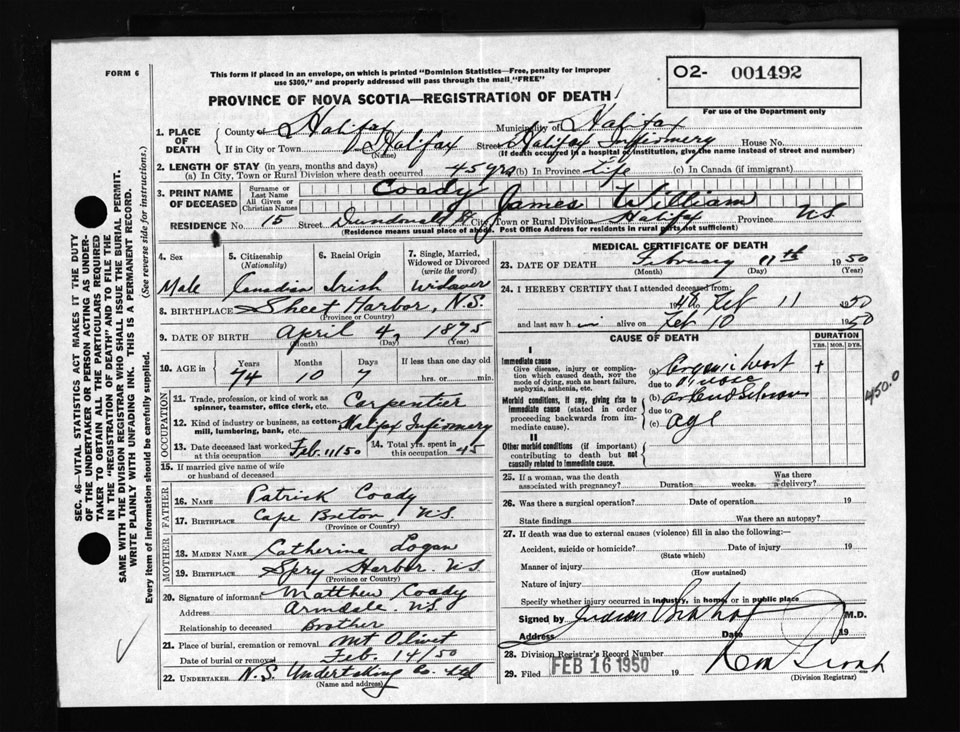 FORM 6
This form if placed in an envelope, on which is printed "Dominion Statistics—Free, penalty for improper
use $300," and properly addressed will pass through the mail "FREE"
O2- 001492
For use of the Department only
PROVINCE OF NOVA SCOTIA—REGISTRATION OF DEATH
1. PLACE OF DEATH
County of Halifax Municipality of Halifax
If in City or Town Halifax Street Halifax Infirmary House No.
(Name) (If death occurred in a hospital or institution, give the name instead of street and number)
2. LENGTH OF STAY (in years, months and days)
(a) In City, Town or Rural Division where death occurred 45 yrs (b) In Province Life (c) In Canada (if immigrant)
3. PRINT NAME OF DECEASED
Surname or Last Name Coady
All Given or Christian Names James William
RESIDENCE No. 15 Street Dundonald St City, Town or Rural Division Halifax Province N.S.
(Residence means usual place of abode. Post Office Address for residents in rural parts not sufficient)
4. Sex Male
5. Citizenship (Nationality) Canadian
6. Racial Origin Irish
7. Single, Married, Widowed or Divorced (write the word) Widower
8. BIRTHPLACE Sheet Harbor, N.S.
(Province or Country)
9. DATE OF BIRTH April 4, 1875
(Month) (Day) (Year)
10. AGE in Years 74 Months 10 Days 7 If less than one day old hrs. or min.
OCCUPATION
11. Trade, profession, or kind of work as spinner, teamster, office clerk, etc. Carpentier
12. Kind of industry or business, as cotton-mill, lumbering, bank, etc. Halifax Infirmary
13. Date deceased last worked at this occupation Feb. 11/50
14. Total yrs. spent in this occupation 45
15. If married give name of wife or husband of deceased
FATHER
16. NAME Patrick Coady
17. BIRTHPLACE Cape Breton N.S.
(Province or Country)
MOTHER
18. MAIDEN NAME Catherine Logan
19. BIRTHPLACE Spry Harbor N.S
(Province or Country)
20. Signature of informant Matthew Coady
Address Armdale N.S.
Relationship to deceased Brother
21. Place of burial, cremation or removal Mt Olivet
Date of burial or removal Feb. 14/50
22. UNDERTAKER N.S. Undertaking Co. Ltd
(Name and address)
MEDICAL CERTIFICATE OF DEATH
23. DATE OF DEATH February 11th 1950
(Month) (Day) (Year)
24. I HEREBY CERTIFY that I attended deceased from:
Feb 11 1950
and last saw h im alive on Feb 10 1950
CAUSE OF DEATH
DURATION
YRS. MOS. DYS.
I
Immediate cause
Give disease, injury or complication which caused death, not the mode of dying, such as heart failure, asphyxia, asthenia, etc.
(a) Organic heart disease +
due to
Morbid conditions, if any, giving rise to immediate cause (stated in order proceeding backwards from immediate cause).
(b)
due to
(c) age
450.0
II
Other morbid conditions (if important) contributing to death but not causally related to immediate cause.
25. If a woman, was the death associated with pregnancy? Duration weeks. Was there a delivery?
26. Was there a surgical operation? Date of operation 19
State findings Was there an autopsy?
27. If death was due to external causes (violence) fill in also the following:—
Accident, suicide or homicide? Date of injury 19
(State which)
Manner of injury
(How sustained)
Nature of injury
Specify whether injury occurred in industry, in home, or in public place
Signed by M.D.
Address Date 19
28. Division Registrar's Record Number
29. Filed FEB 16 1950 19
(Division Registrar)
SEC. 46—VITAL STATISTICS ACT MAKES IT THE DUTY
OF THE UNDERTAKER OR PERSON ACTING AS UNDER-
TAKER TO OBTAIN ALL THE PARTICULARS REQUIRED
IN THE "REGISTRATION OF DEATH" AND TO FILE THE
SAME WITH THE DIVISION REGISTRAR WHO SHALL ISSUE THE BURIAL PERMIT.
WRITE PLAINLY WITH UNFADING INK. THIS IS A PERMANENT RECORD.
Every item of information should be carefully supplied. (See reverse side for instructions.)